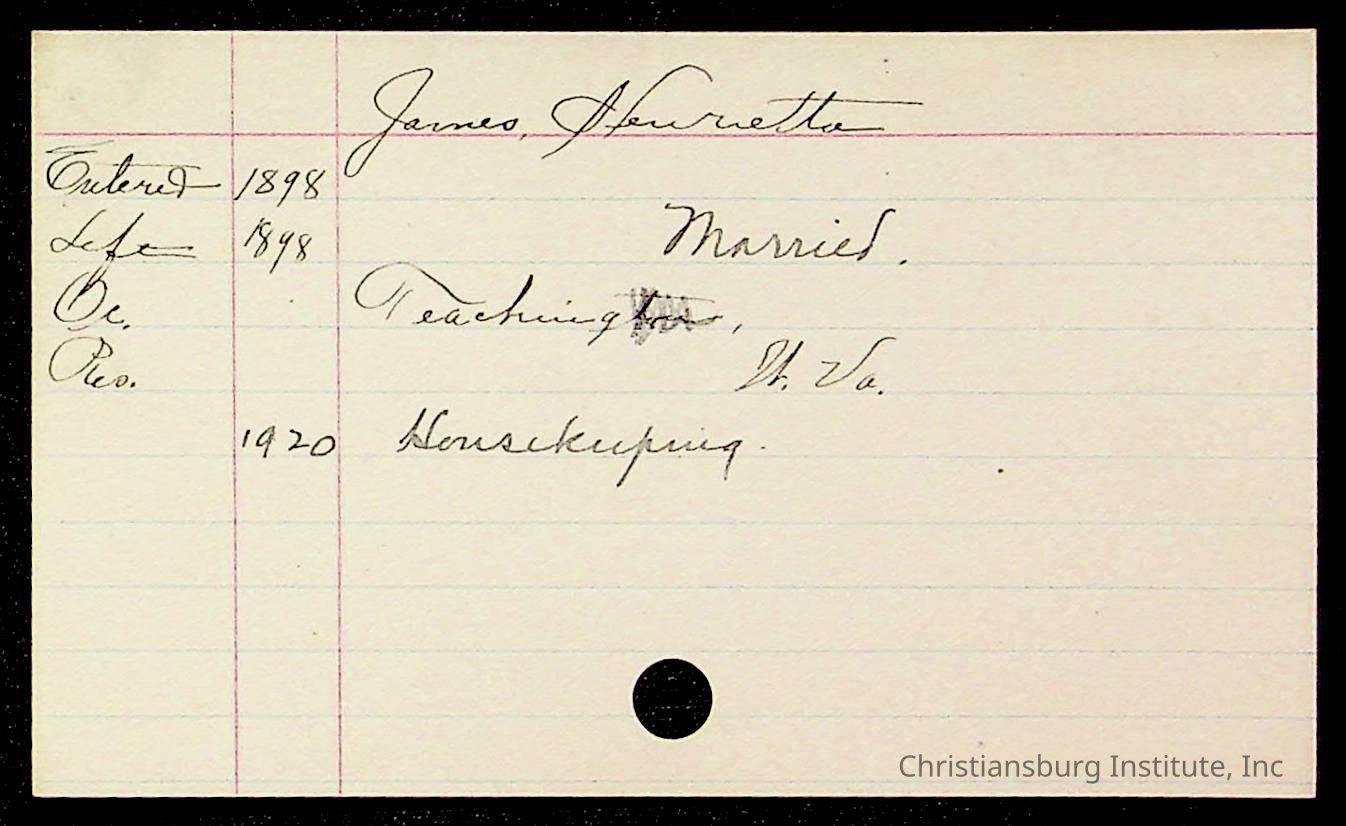 James, Henrietta
Entered 1898
Left 1898 Married.
Oc. Teaching,
Res. W. Va.
1920 Housekeeping.
Christiansburg Institute, Inc